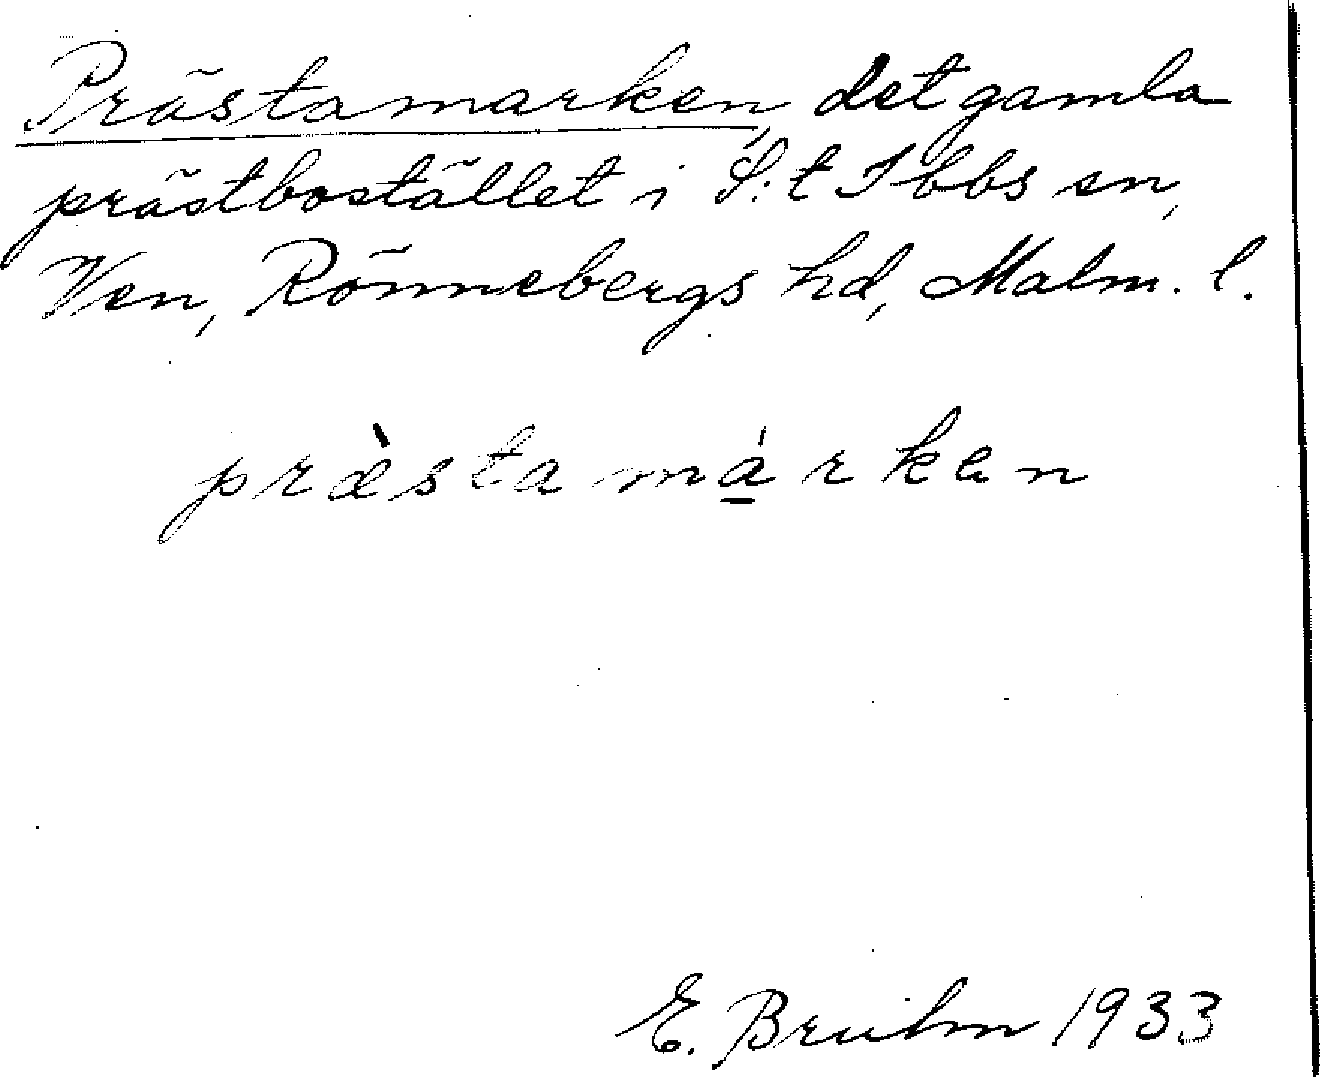 Prästamarken, det gamla
prästbostället i S:t Ibbs sn,
Ven, Rönnebergs hd, Malm. l.
præ̀stamá̱rken
E. Bruhn 1933